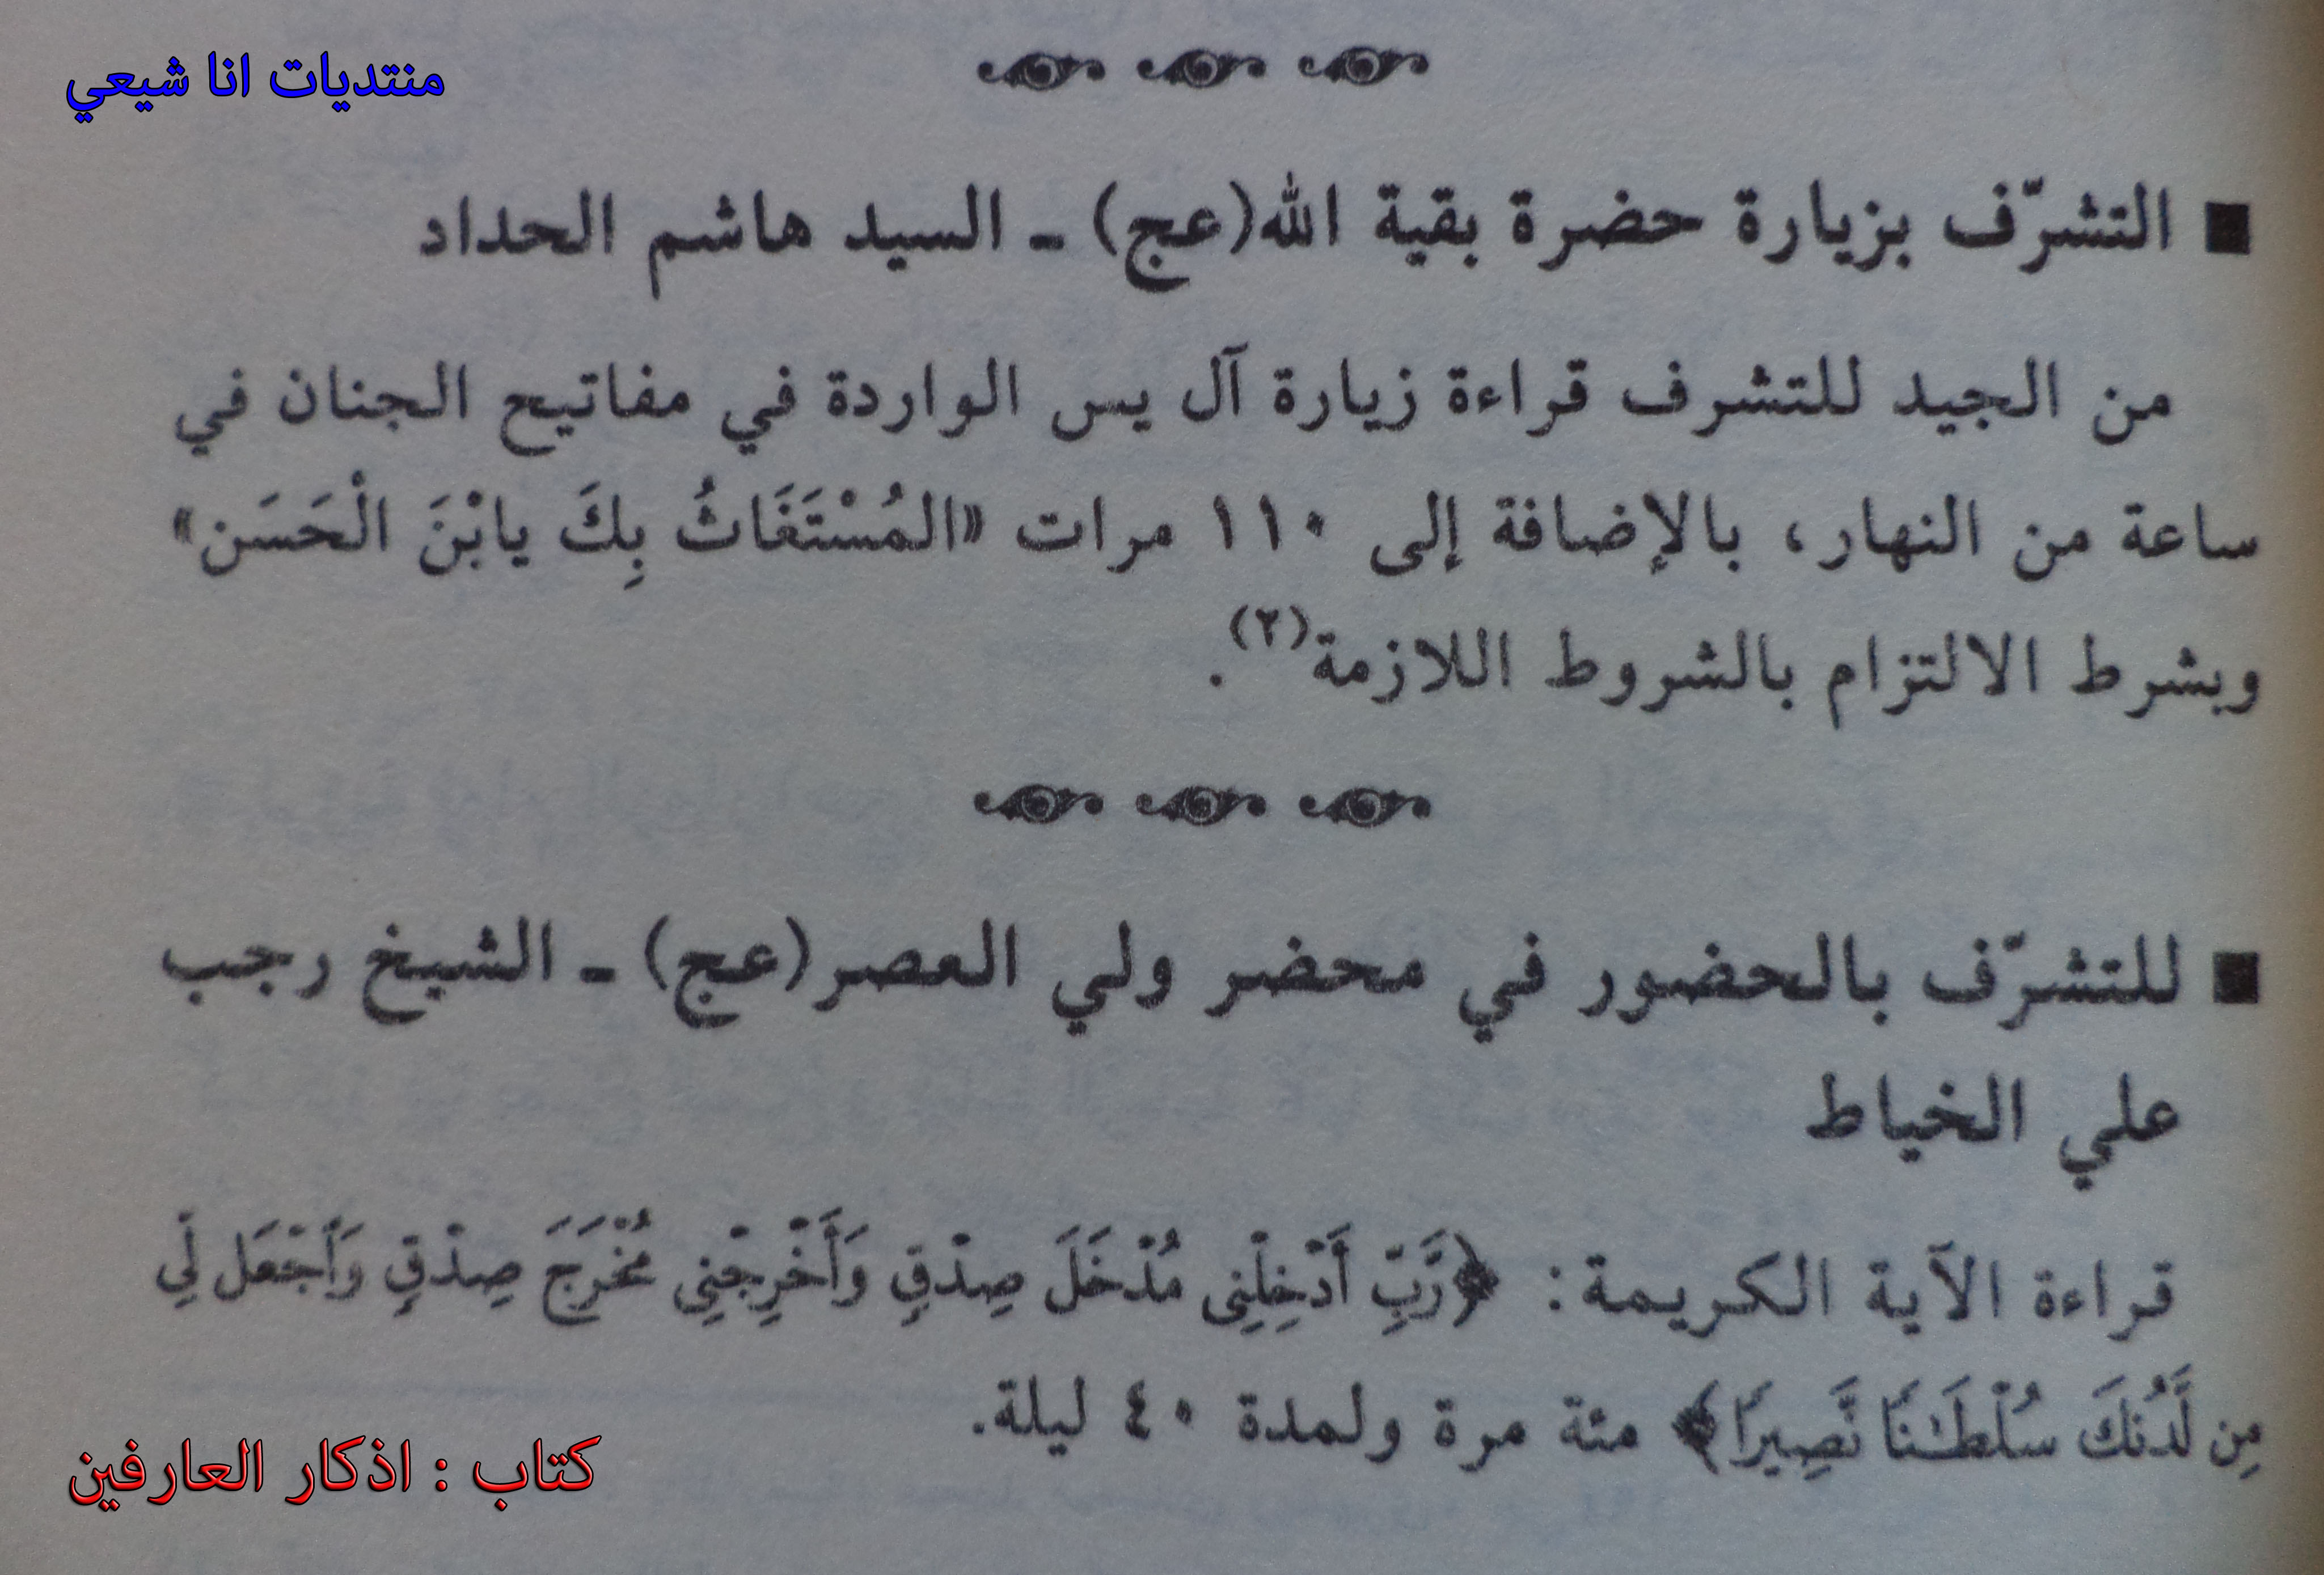 منتديات انا شيعي
■ التشرّف بزيارة حضرة بقية الله(عج) ـ السيد هاشم الحداد
من الجيد للتشرف قراءة زيارة آل يس الواردة في مفاتيح الجنان في
ساعة من النهار، بالإضافة إلى ١١٠ مرات «المُسْتَغَاثُ بِكَ يابْنَ الْحَسَن»
وبشرط الالتزام بالشروط اللازمة(٢).
■ للتشرّف بالحضور في محضر ولي العصر(عج) ـ الشيخ رجب
علي الخياط
قراءة الآية الكريمة: ﴿رَّبِّ أَدْخِلْنِى مُدْخَلَ صِدْقٍ وَأَخْرِجْنِى مُخْرَجَ صِدْقٍ وَٱجْعَل لِّي
مِن لَّدُنكَ سُلْطَـٰنًا نَّصِيرًا﴾ مئة مرة ولمدة ٤٠ ليلة.
كتاب : اذكار العارفين